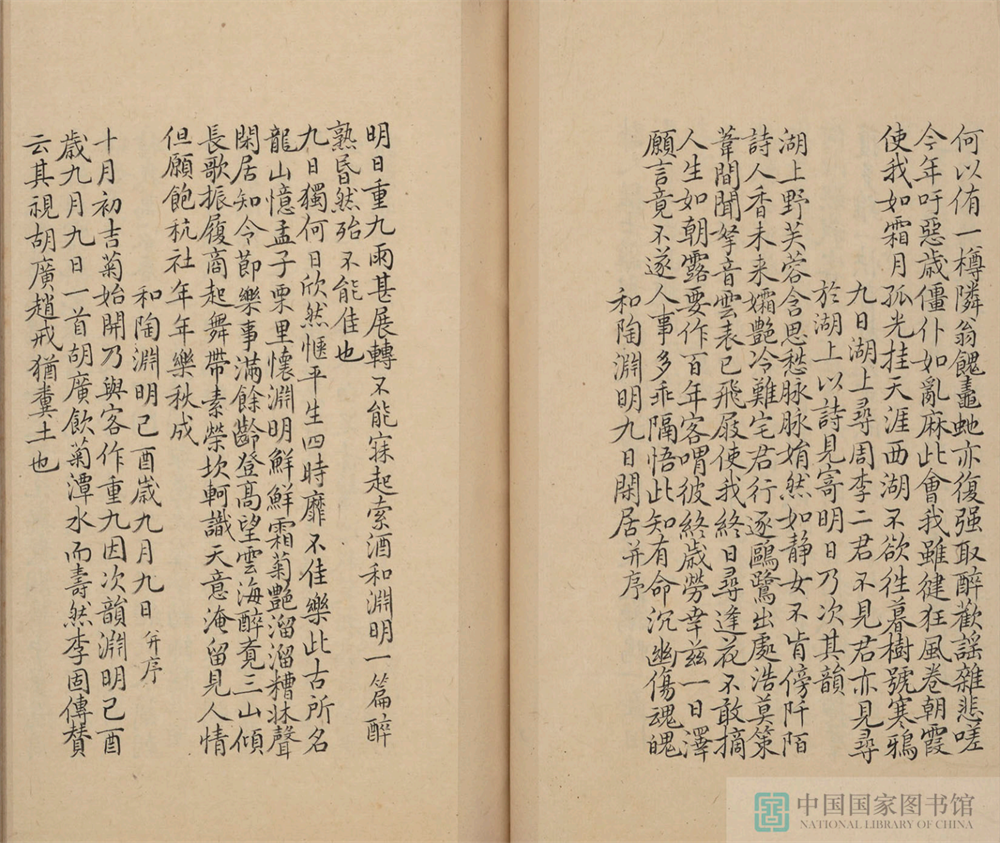 何以侑一樽隣翁餽鼃虵亦復强取醉歡謡雜悲嗟
今年吁惡歳僵仆如亂麻此會我雖健狂風卷朝霞
使我如霜月孤光挂天涯西湖不欲徃暮樹號寒鴉
九日湖上尋周李二君不見君亦見尋
於湖上以詩見寄明日乃次其韻
湖上野芙蓉含思愁脉脉娟然如静女不肯傍阡陌
詩人香未来孀艶冷難宅君行逐鷗鷺出處浩莫策
葦間聞拏音雲表已飛屐使我終日尋逢花不敢摘
人生如朝露要作百年客喟彼終歳勞幸兹一日澤
願言竟不遂人事多乖隔悟此知有命沉幽傷魂魄
和陶淵明九日閑居并序
明日重九雨甚展轉不能寐起索酒和淵明一篇醉
熟昏然殆不能佳也
九日獨何日欣然愜平生四時靡不佳樂此古所名
龍山憶孟子栗里懷淵明鮮鮮霜菊艶溜溜糟牀聲
閑居知令節樂事滿餘齡登高望雲海醉覔三山傾
長歌振履商起舞帶索榮坎軻識天意淹留見人情
但願飽秔社年年樂秋成
和陶淵明己酉歳九月九日并序
十月初吉菊始開乃與客作重九因次韻淵明己酉
歳九月九日一首胡廣飲菊潭水而壽然李固傳賛
云其視胡廣趙戒猶糞土也
中国国家图书馆
NATIONAL LIBRARY OF CHINA